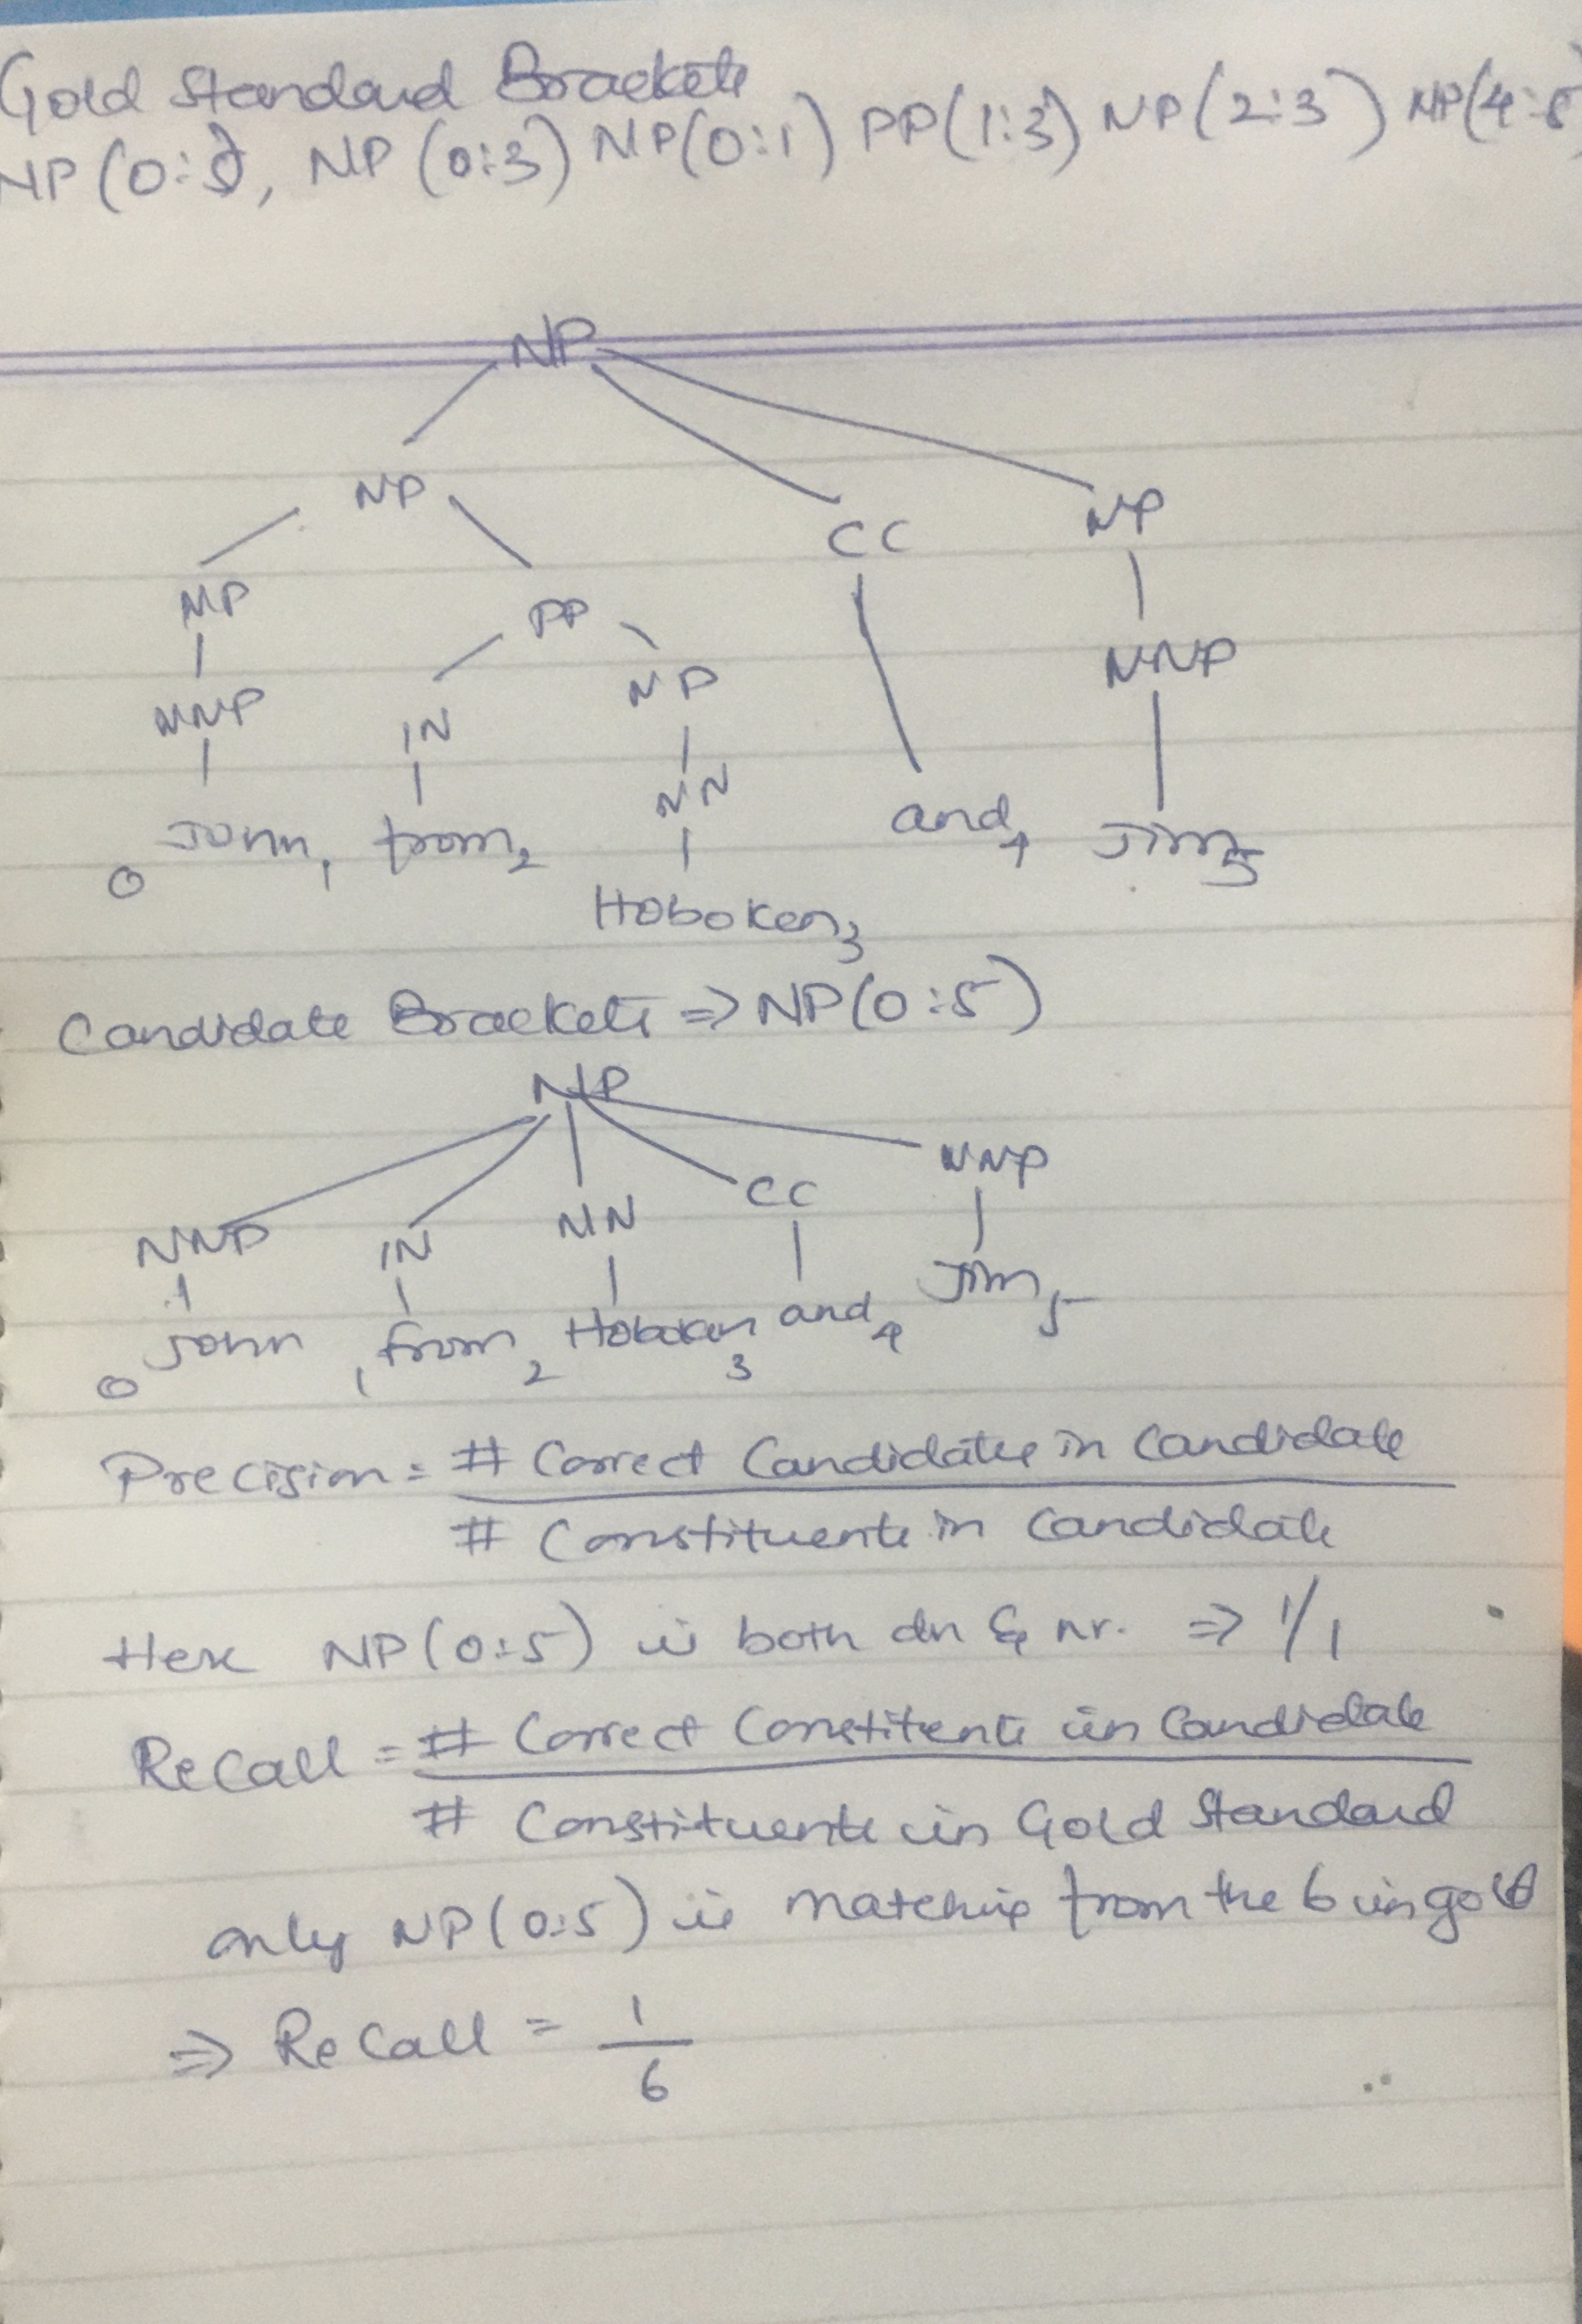 Gold Standard Brackets
NP(0:5), NP(0:3) NP(0:1) PP(1:3) NP(2:3) NP(4:5)
NP
NP CC NP
NP PP NNP
NNP IN NP
NN
0 John 1 from 2 and 4 Jim 5
Hoboken 3
Candidate Brackets => NP(0:5)
NP
NNP IN NN CC NNP
0 John 1 from 2 Hoboken 3 and 4 Jim 5
Precision = # Correct Candidates in Candidate
# Constituents in Candidate
Here NP(0:5) is both dn & nr. => 1/1
Recall = # Correct Constituents in Candidate
# Constituents in Gold Standard
only NP(0:5) is matching from the 6 in gold
=> Recall = 1
6